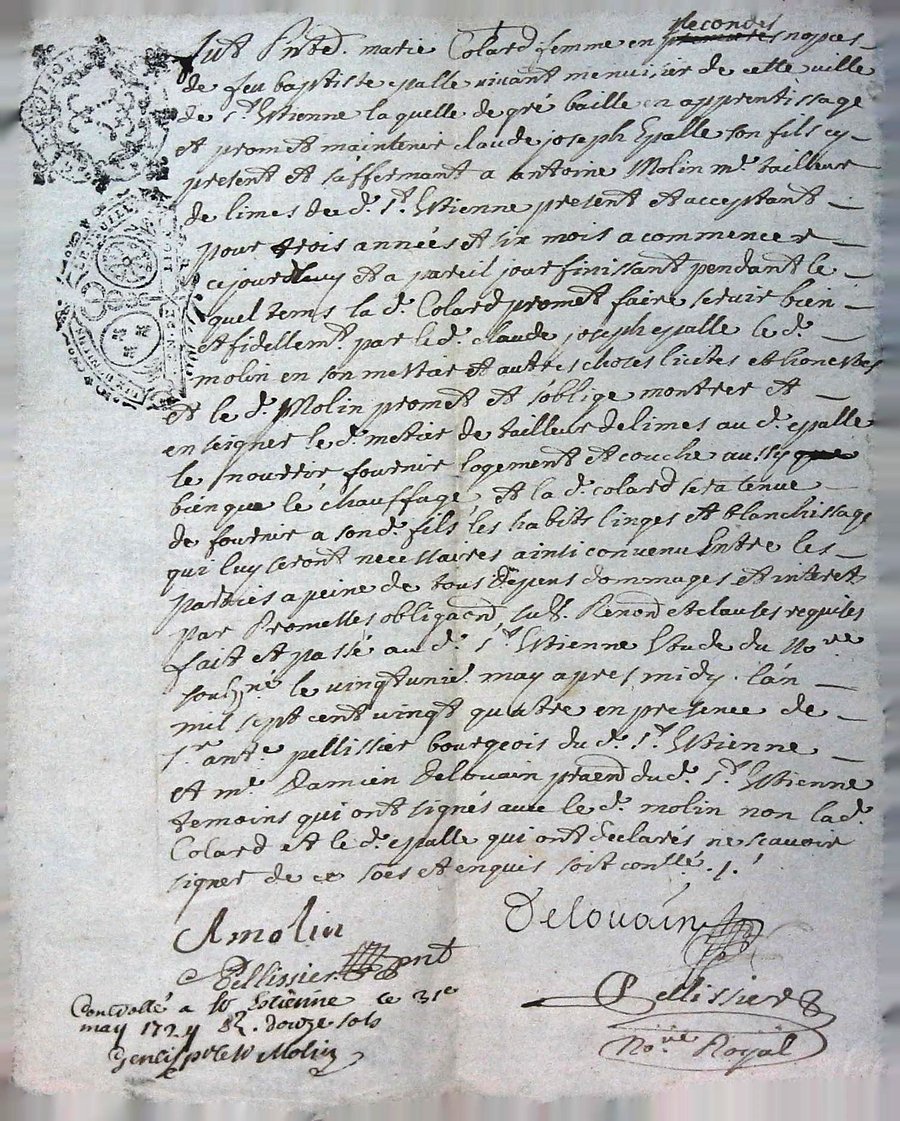 fut pnte. marie Colard femme en secondes nopces
de feu baptiste epalle vivant menuisier de cette ville
de st. Estienne laquelle de gré baille en apprentissage
et promet maintenir claude joseph Epalle son fils cy
present et s'affermant a antoine Molin me. tailleur
de limes de d. st. Estienne present et acceptant
pour trois années et six mois a commencer
cejourdhuy et a pareil jour finissant pendant le
quel tems la d. Colard promet faire servir bien
et fidellemt. par le d. claude joseph epalle le d.
molin en son mettier et autres choses licites et honestes
et le d. Molin promet et s'oblige montrer et
enseigner le d. metier de tailleur de limes au d. epalle
le nourrir fournir logement et couche aussy
bien que le chauffage et la d. colard sera tenue
de fournir a son d. fils les habits linges et blanchissage
qui luy seront necessaires ainsi convenu Entre les
parties a peine de tous depens dommages et interets
par Promesses obligaond, sub. Renond et clauses requises
fait et passé au d. st. Estienne Etude du Nore
soubzne le vingt unie. may apres midy. l'an
mil sept cent vingt quatre en presence de
sr. ante. pellissier bourgeois du d. st. Estienne
et me. Damien Delouain pratnd du d. st. Estienne
temoins qui ont signés avec le d. molin non la d.
Colard et le d. epalle qui ont declarés ne scavoir
signer de ce soes et enquis soit contllé. /.
AMolin
Delouain
Pellissier pnt
Pellissier
Controllé a St Etienne ce 31e
may 1724 R. douze sols
Molin
Nore Royal